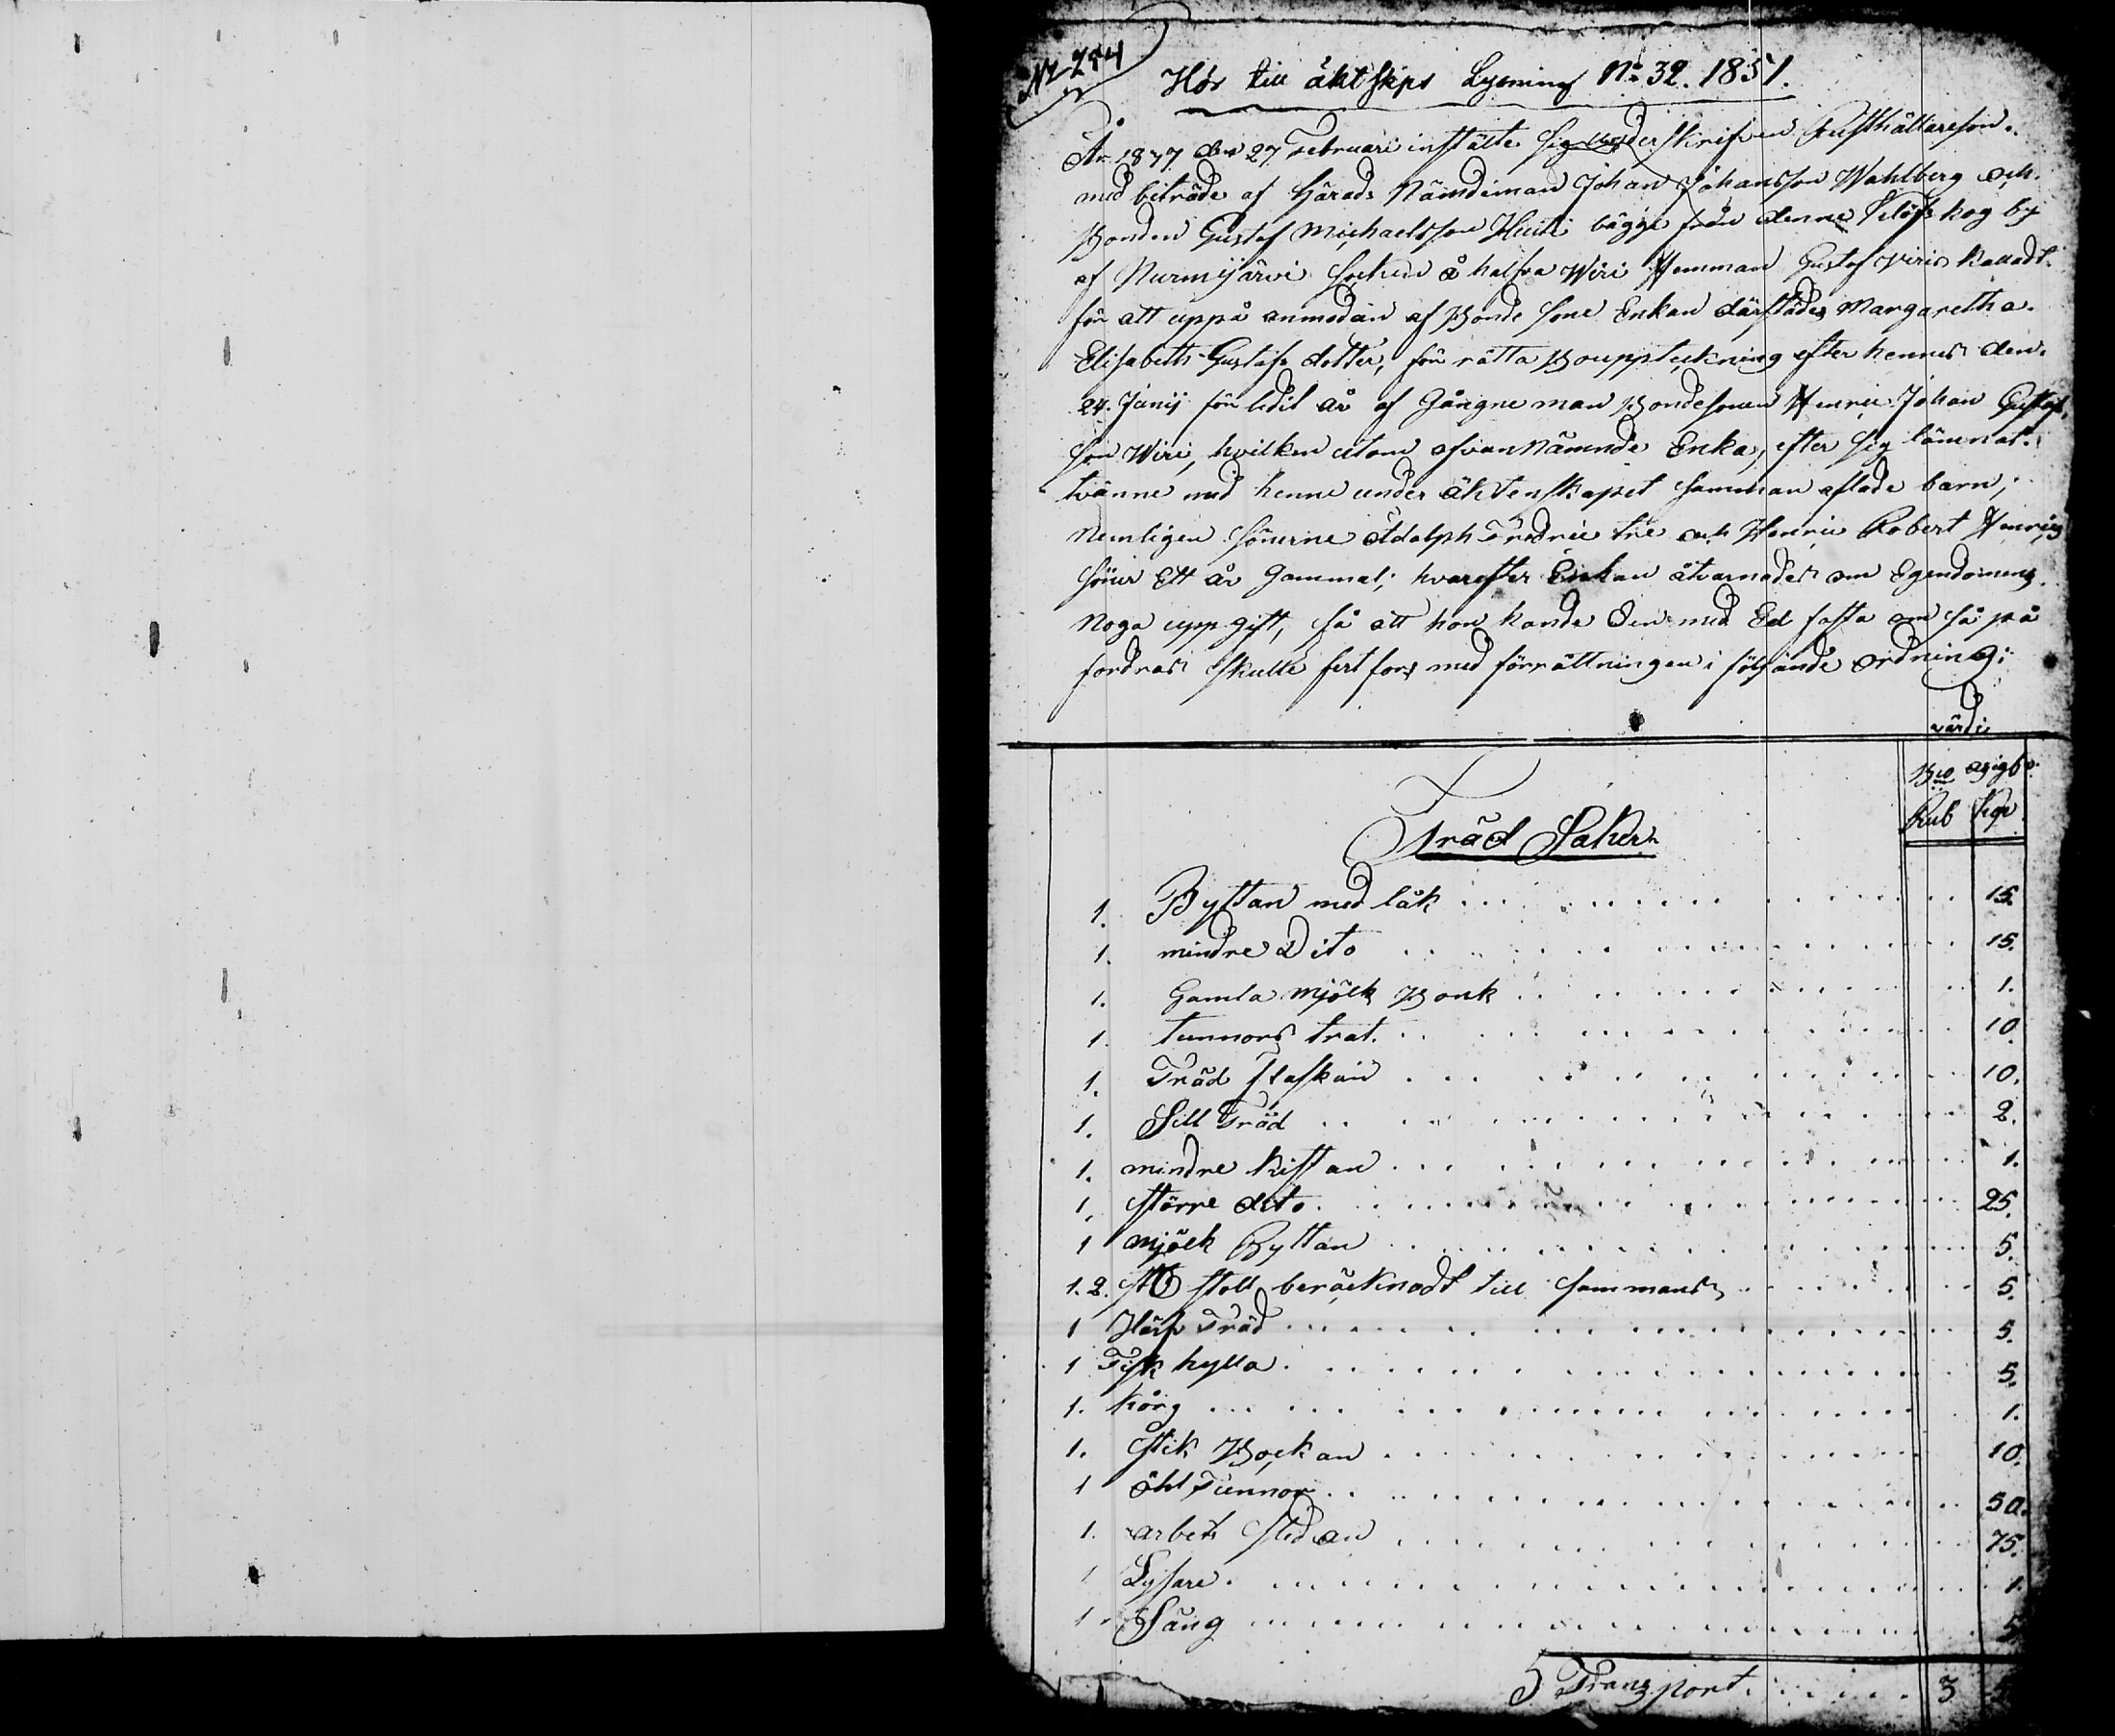 No 294
Hör till äktskps Lysning No 32. 1851.
År 1877 den 27 Februari instälte sig underskrifven Rusthållareson.
med biträde af Härads Nämdeman Johan Johansson Wahlberg och.
Bonden Gustaf Michaelsson Huiti bägge från denne by
af Nurmijärvi Sockn å halfva Wiri Hemman Gustaf Wiris kalladt.
för att uppå anmodan af Bonde sone Enkan därstädes Margaretha.
Elisabeth Gustafs dotter, för rätta Bouppteckning efter hennes den.
24. Junij för ledit år af Gångne man Bondesonen Henric Johan Gustafs.
son Wiri, hvilken utom ofvan Nämnde Enka, efter sig lämnat.
tvänne med henne under äktenskapet samman aflade barn;
Nemligen Sönerne Adolph Fredric tre och Henric Robert Henrics
söner Ett år Gammal; hvarefter Enkan åtvarnades om Egendomens
Noga uppgift, så att hon kande den med Ed fästa om så på
fordras skulle fortfors med förrättningen i följande ordning:
värde
Bco
Rub Kop
Träd Saker
1. Byttan med låk ... 15.
1. mindre Dito ... 15.
1. Gamla mjölk Bonk ... 1.
1. tunnors trat. ... 10.
1. Träd flaskan ... 10.
1. Sill Träd ... 2.
1. mindre kistan ... 1.
1. större dito ... 25.
1 mjölk Byttan ... 5.
1. 2. st stoll beräcknadt till sammans ... 5.
1 Härf Träd ... 5.
1 Fisk hylla ... 5.
1. körg ... 1.
1. Stik Bockan ... 10.
1 öhl Tunnor ... 50.
1. arbets slädan ... 75.
1 Lysare ... 1.
1. Säng ... 5
Transport ... 3